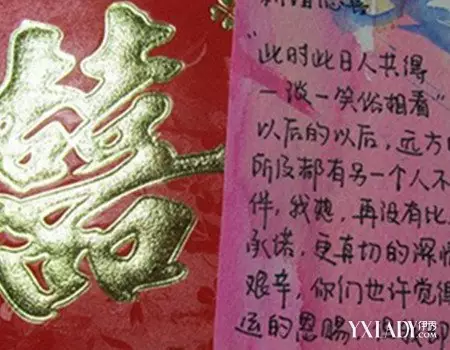 囍
“此时此日人共得
一波一笑俗相看”
以后的以后，远方
所及都有另一个人不
件，我想，再没有比
承诺，更真切的深情
艰辛，你们也许觉得
运的恩赐
YXLADY.com
伊秀